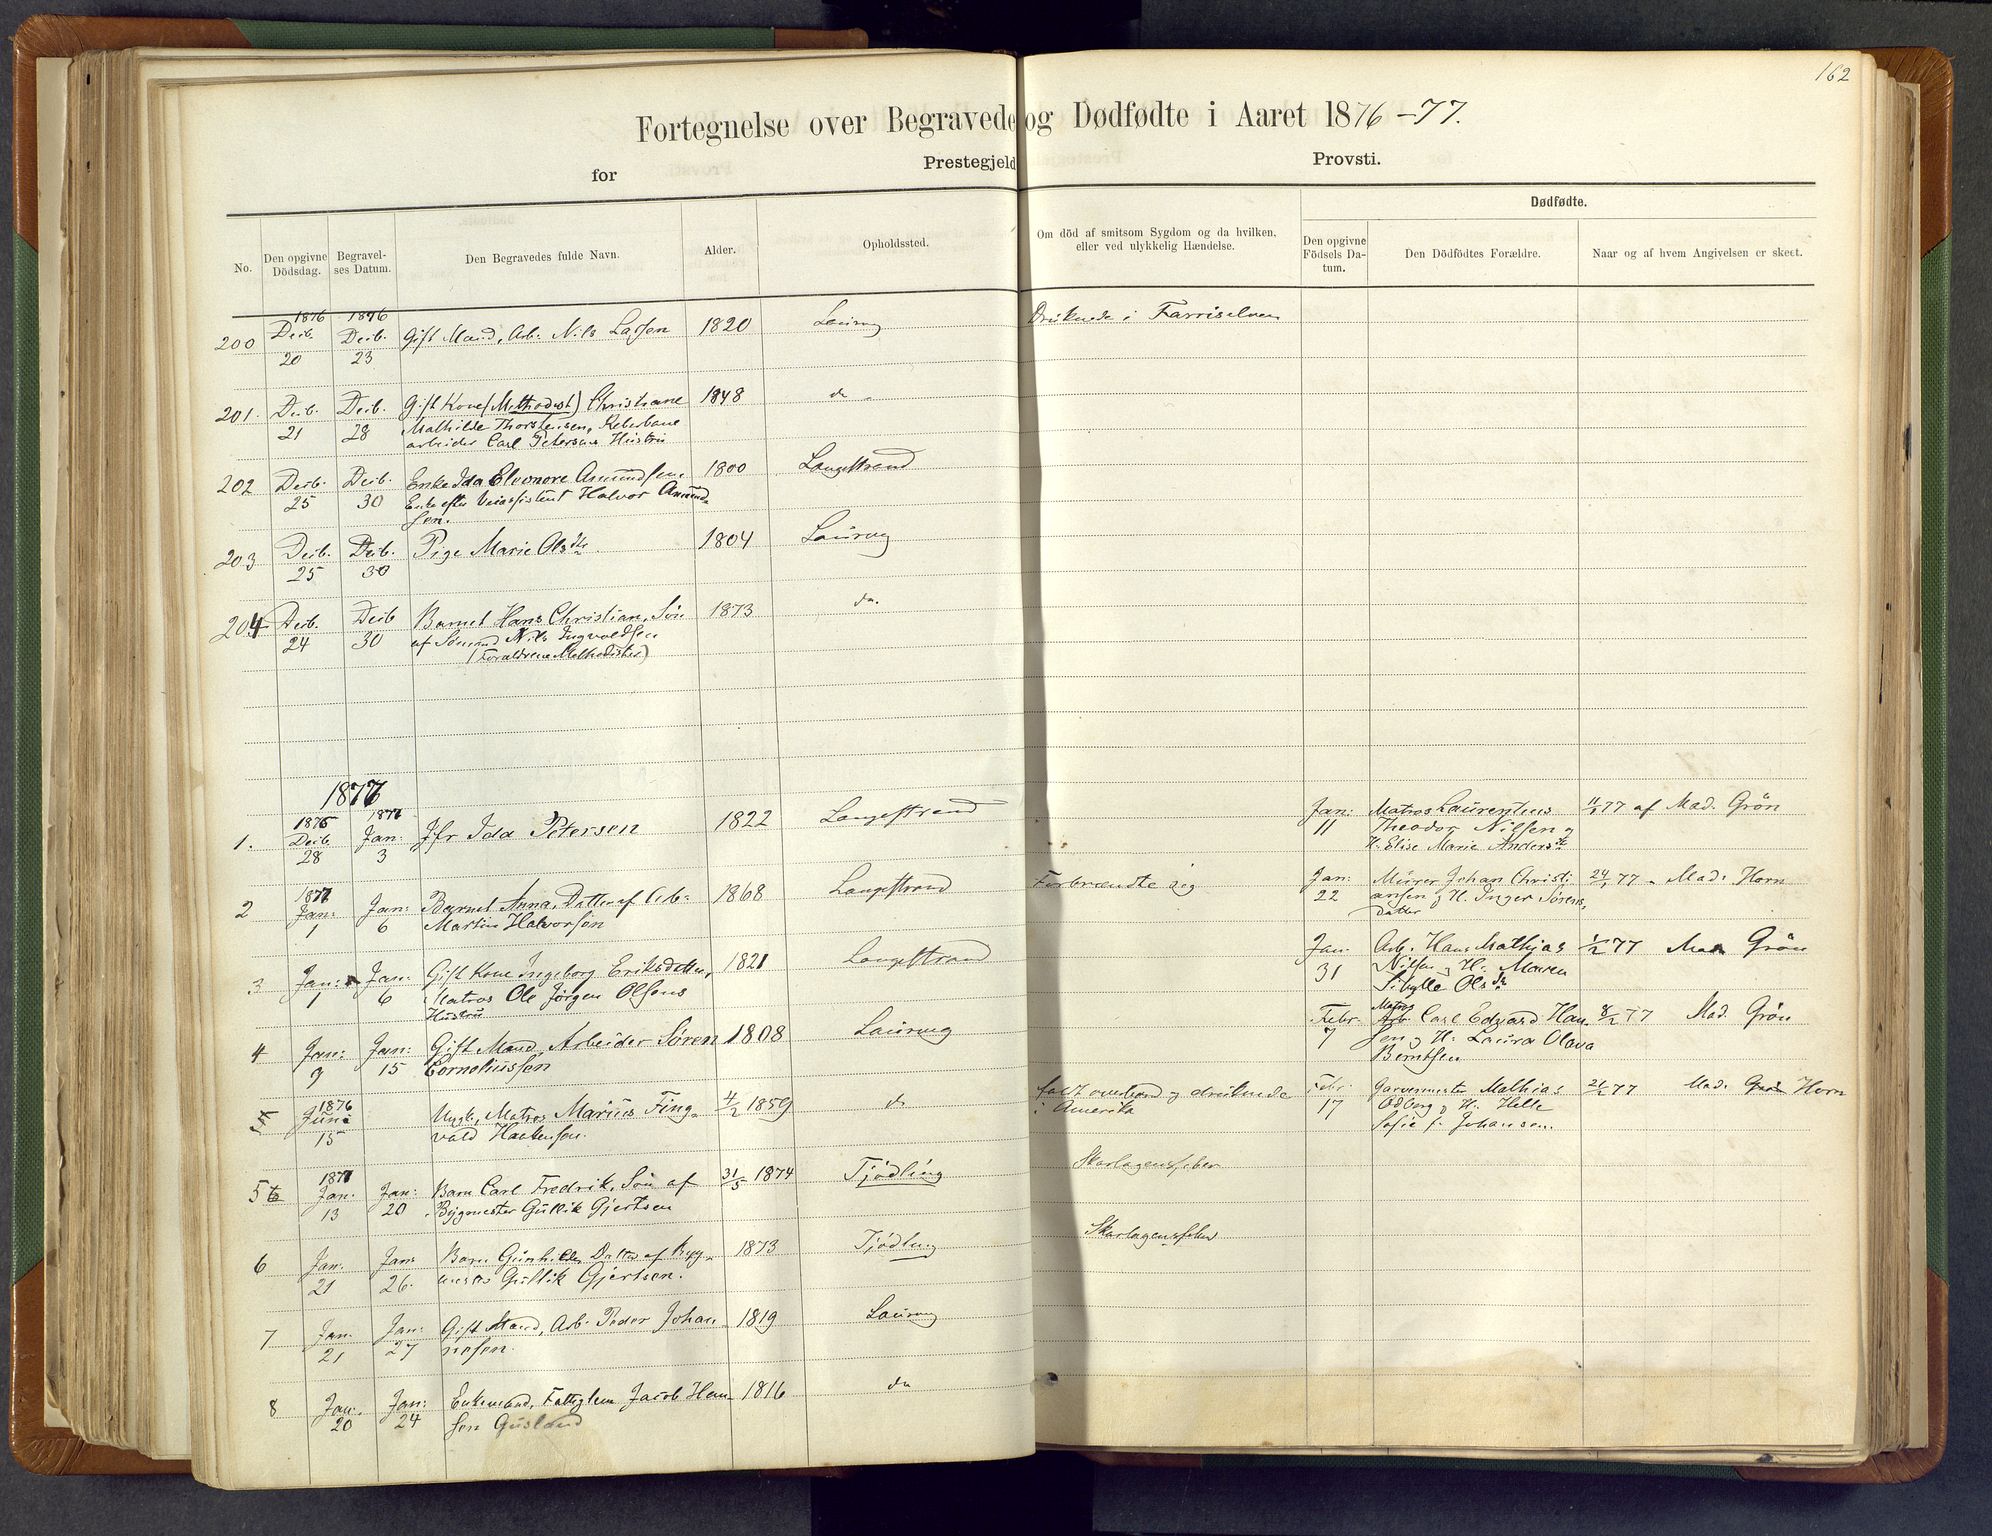 162
Fortegnelse over Begravede og Dødfødte i Aaret 1876-77.
for Prestegjeld Provsti.
No. Den opgivne Dödsdag. Begravelses Datum. Den Begravedes fulde Navn. Alder. Opholdssted. Om död af smitsom Sygdom og da hvilken, eller ved ulykkelig Hændelse.
Dødfødte.
Den opgivne Födsels Datum. Den Dödfödtes Forældre. Naar og af hvem Angivelsen er skeet.
200 1876 Decb. 20 1876 Decb. 23 Gift Mand, Arb. Nils Larsen 1820 Laurvig Druknede i Farriselven
201. Decb. 21 Decb. 28 Gift Kone (Methodist) Christiane 1848 do
Mathilde Thorsteinsen, Reberbane
arbeider Carl Petersens Hustru
202 Decb. 25 Decb. 30 Enke Ida Eleonore Amundsen, 1800 Langestrand
Enke efter Veiassistent Halvor Amund-
sen.
203 Decb. 25 Decb. 30 Pige Marie Olsdtr 1804 Laurvig
204 Decb. 24 Decb 30 Barnet Hans Christian, Sön 1873 do.
af Sömand Nils Ingvoldsen
(Forældrene Methodister)
1877
1. 1876 Decb. 28 1877 Jan: 3 Jfr Ida Petersen 1822 Langestrand
2 1877 Jan: 1 Jan: 6 Barnet Anna, Datter af Arb: 1868 Langestrand Forbrændte sig
Martin Halvorsen
3 Jan: 1 Jan: 6 Gift Kone Ingeborg Eriksdatter, 1821 Langestrand
Matros Ole Jörgen Olsens
Hustru
4 Jan: 9 Jan: 15 Gift Mand, Arbeider Sören 1808 Laurvig
Corneliussen
1876 Juni 15 Ungk. Matros Marius Fing- 4/2 1859 do faldt overbord og druknede
vald Haakensen. i Amerika
5 1877 Jan: 13 Jan: 20 Barn Carl Fredrik, Sön af 31/5 1874 Tjödling Skarlagensfeber
Bygmester Gullik Gjertsen
6 Jan. 21 Jan: 26. Barn Gunhilde, Datter af Byg- 1873 Tjödling Skarlagensfeber
mester Gullik Gjertsen.
7 Jan. 21 Jan: 27 Gift Mand, Arb. Peder Johan- 1819 Laurvig
nesen.
8 Jan. 20 Jan: 24 Enkemand, Fattiglem Jacob Han- 1816 do
sen Gusland
Jan: 11 Matros Laurentius 11/1 77 af Mad. Grön
Theodor Nilsen og
H. Elise Marie Andersdtr
Jan: 22 Mürer Johan Christi 24/1 77 - Mad. Horn
ansen og H. Inger Sörens
datter
Jan. 31 Arb. Hans Mathias 1/2 77 Mad Grön
Nilsen og H. Maren
Sibylle Olsdtr
Febr. 7 Matros Carl Edvard Han- 8/2 77 Mad. Grön
sen og H. Laura Olava
Berntsen
Febr 17 Garvermester Mathias 21/2 77 Mad. Horn
Odberg og H. Helle
Sofie f. Johansen.